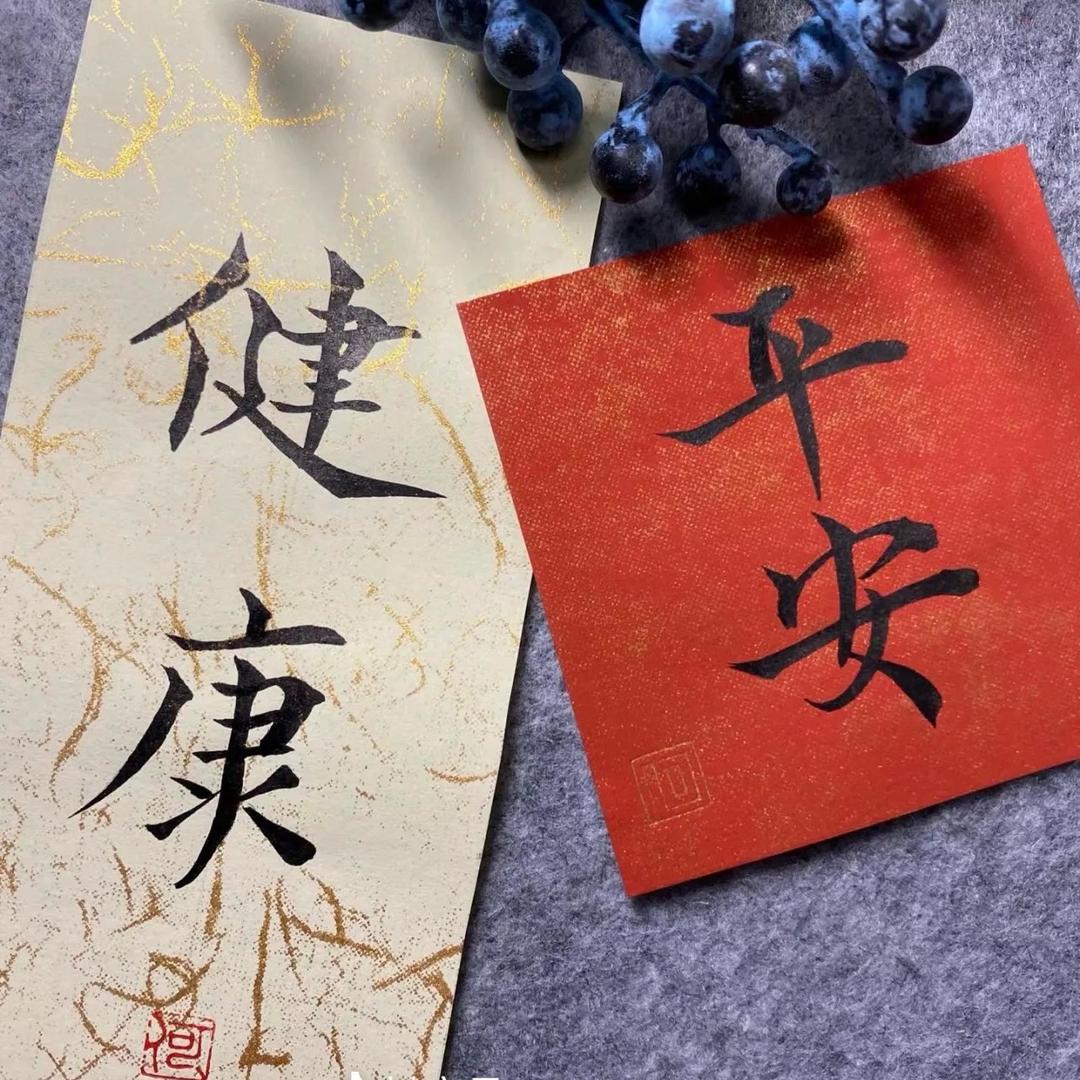 健康
平安
何